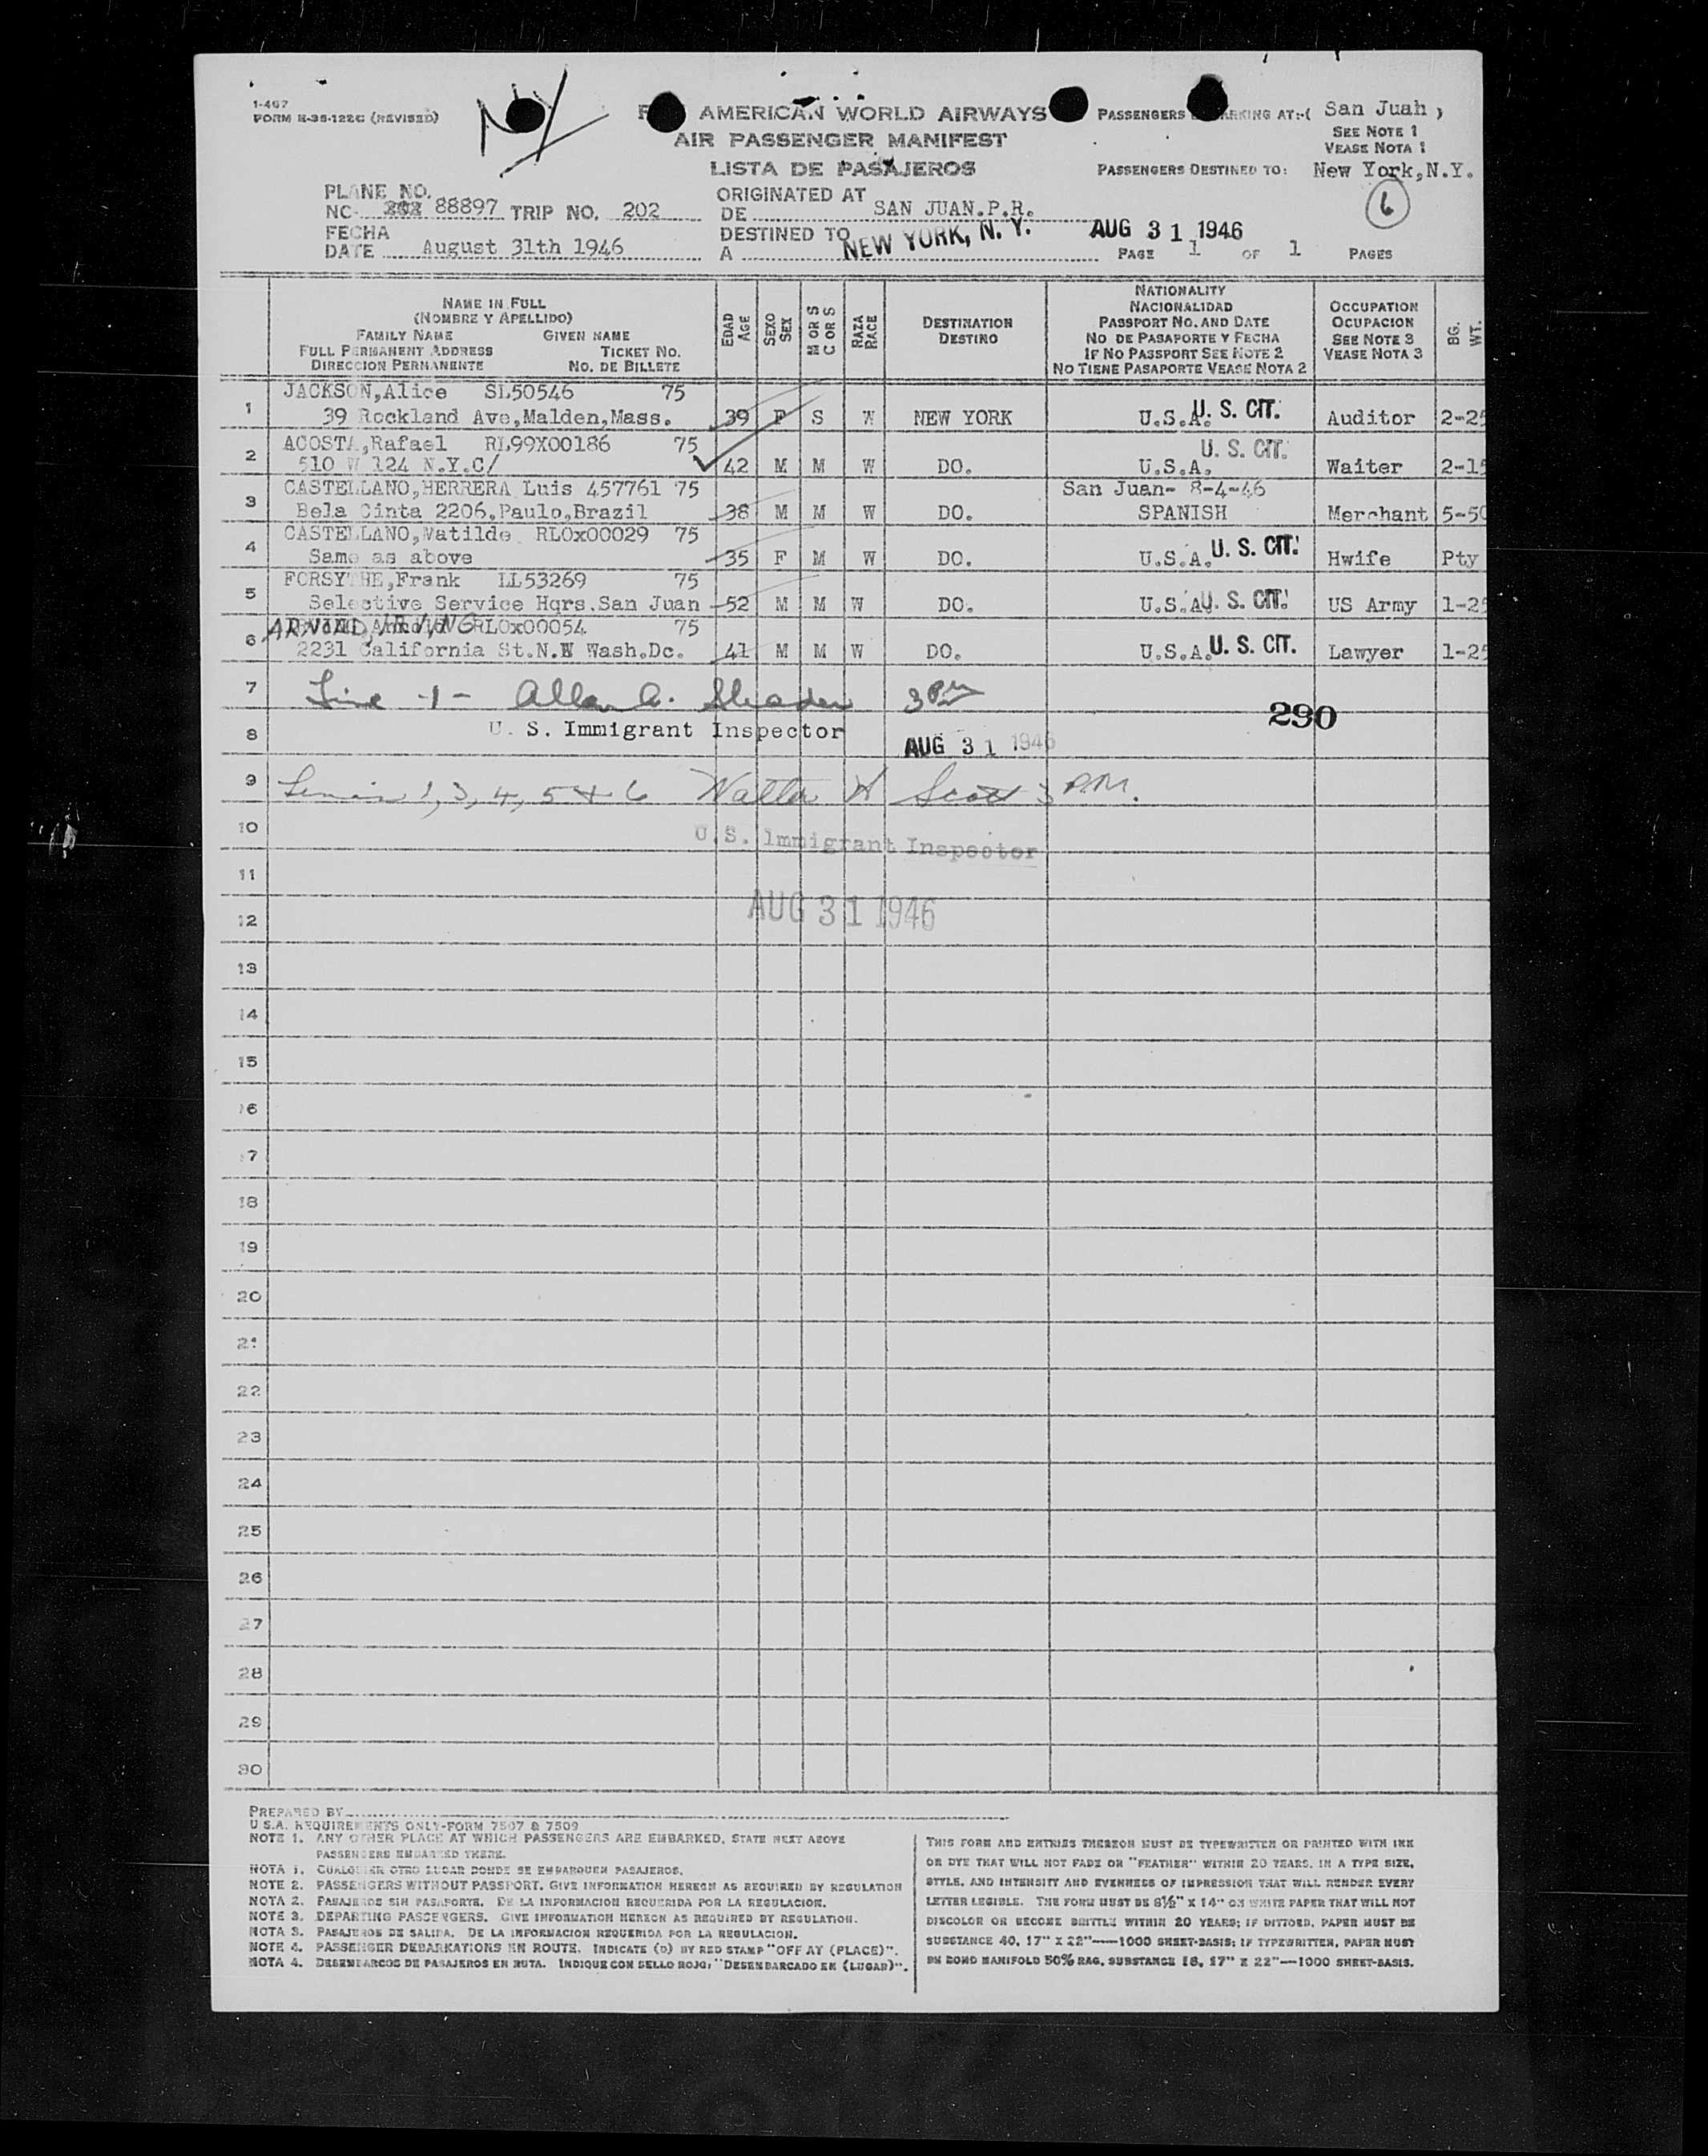 1-467
FORM H-35-122C (REVISED)
NY
AMERICAN WORLD AIRWAYS
AIR PASSENGER MANIFEST
LISTA DE PASAJEROS
PASSENGERS EMBARKING AT:-( San Juah )
SEE NOTE 1
VEASE NOTA 1
PASSENGERS DESTINED TO: New York,N.Y.
6
PLANE NO.
NC- 88897 TRIP NO. 202
ORIGINATED AT
DE SAN JUAN.P.R.
FECHA
DATE August 31th 1946
DESTINED TO
A NEW YORK, N. Y.
AUG 31 1946
PAGE 1 OF 1 PAGES
NAME IN FULL
(NOMBRE Y APELLIDO)
FAMILY NAME GIVEN NAME
FULL PERMANENT ADDRESS TICKET NO.
DIRECCION PERMANENTE NO. DE BILLETE
EDAD AGE
SEXO SEX
M OR S C OR S
RAZA RACE
DESTINATION
DESTINO
NATIONALITY
NACIONALIDAD
PASSPORT NO. AND DATE
NO DE PASAPORTE Y FECHA
IF NO PASSPORT SEE NOTE 2
NO TIENE PASAPORTE VEASE NOTA 2
OCCUPATION
OCUPACION
SEE NOTE 3
VEASE NOTA 3
BG. WT.
JACKSON,Alice SL50546 75
1 39 Rockland Ave,Malden,Mass. 39 F S W NEW YORK U.S.A. U. S. CIT. Auditor 2-25
ACOSTA,Rafael RL99X00186 75 U. S. CIT.
2 510 W 124 N.Y.C/ 42 M M W DO. U.S.A. Waiter 2-15
CASTELLANO,HERRERA Luis 457761 75 San Juan- 8-4-46
3 Bela Cinta 2206,Paulo,Brazil 38 M M W DO. SPANISH Merchant 5-50
CASTELLANO,Matilde RLOx00029 75
4 Same as above 35 F M W DO. U.S.A. U. S. CIT. Hwife Pty
FORSYTHE,Frank LL53269 75
5 Selective Service Hqrs.San Juan 52 M M W DO. U.S.A. U. S. CIT. US Army 1-25
ARNOLD, IRVING RLOx00054 75
6 2231 California St.N.W Wash.Dc. 41 M M W DO. U.S.A. U. S. CIT. Lawyer 1-25
7 Line -1- Allan 3 PM
290
8 U. S. Immigrant Inspector
AUG 31 1946
9 1, 3, 4, 5 & 6 Walter H Scott 3 P.M.
10
U.S. Immigrant Inspector
11
12 AUG 31 1946
13
14
15
16
17
18
19
20
21
22
23
24
25
26
27
28
29
30
PREPARED BY
U.S.A. REQUIREMENTS ONLY-FORM 7507 & 7509
NOTE 1. ANY OTHER PLACE AT WHICH PASSENGERS ARE EMBARKED, STATE NEXT ABOVE
PASSENGERS EMBARKED THERE.
NOTA 1. CUALQUIER OTRO LUGAR DONDE SE EMBARQUEN PASAJEROS.
NOTE 2. PASSENGERS WITHOUT PASSPORT. GIVE INFORMATION HEREON AS REQUIRED BY REGULATION
NOTA 2. PASAJEROS SIN PASAPORTE. DE LA INFORMACION REQUERIDA POR LA REGULACION.
NOTE 3. DEPARTING PASSENGERS. GIVE INFORMATION HEREON AS REQUIRED BY REGULATION.
NOTA 3. PASAJEROS DE SALIDA. DE LA INFORMACION REQUERIDA POR LA REGULACION.
NOTE 4. PASSENGER DEBARKATIONS EN ROUTE. INDICATE (D) BY RED STAMP "OFF AT (PLACE)".
NOTA 4. DESEMBARCOS DE PASAJEROS EN RUTA. INDIQUE CON SELLO ROJO: "DESENBARCADO EN (LUGAR)".
THIS FORM AND ENTRIES THEREON MUST BE TYPEWRITTEN OR PRINTED WITH INK
OR DYE THAT WILL NOT FADE OR "FEATHER" WITHIN 20 YEARS, IN A TYPE SIZE,
STYLE, AND INTENSITY AND EVENNESS OF IMPRESSION THAT WILL RENDER EVERY
LETTER LEGIBLE. THE FORM MUST BE 8½" X 14" ON WHITE PAPER THAT WILL NOT
DISCOLOR OR BECOME BRITTLE WITHIN 20 YEARS; IF DITTOED, PAPER MUST BE
SUBSTANCE 40, 17" X 22"—1000 SHEET-BASIS; IF TYPEWRITTEN, PAPER MUST
BE BOND MANIFOLD 50% RAG, SUBSTANCE 18, 17" X 22"—1000 SHEET-BASIS.